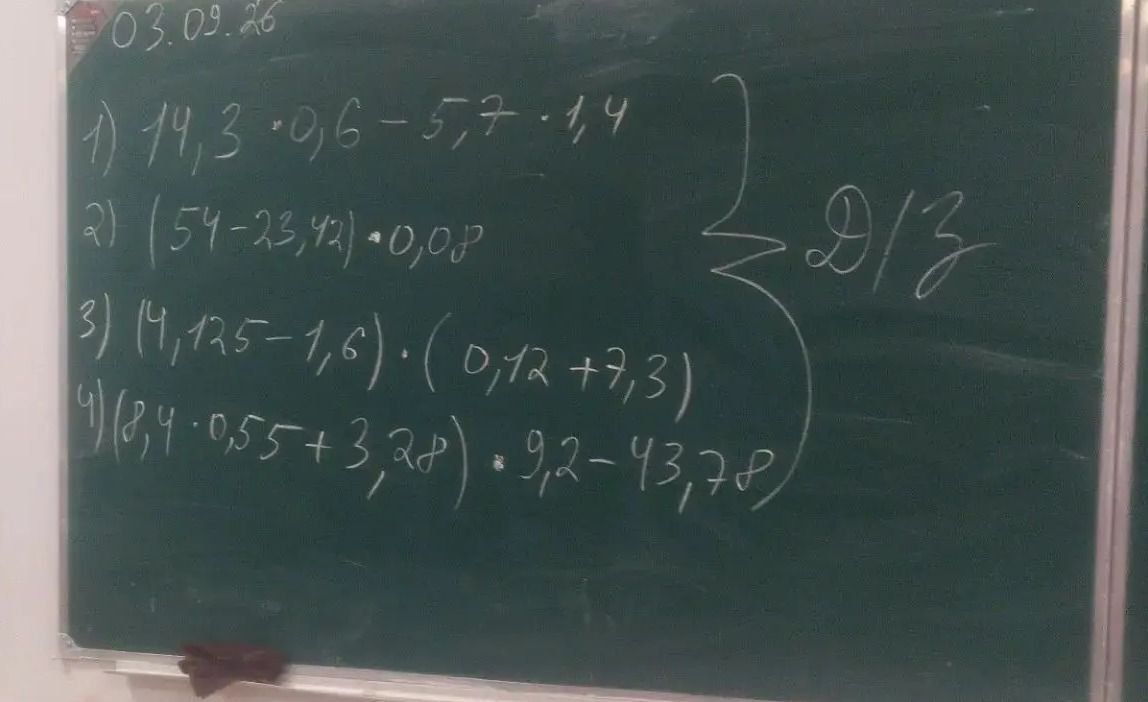 03.09.26
1) 14,3 · 0,6 - 5,7 · 1,4
2) (54-23,42) · 0,08
Д/З
3) (4,125-1,6) · (0,12 + 7,3)
4) (8,4 · 0,55 + 3,28) · 9,2 - 43,78